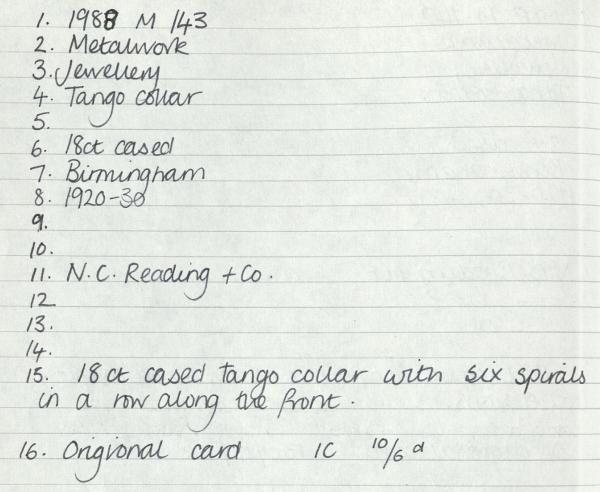 1. 1988 M 143
2. Metalwork
3. Jewellery
4. Tango collar
5.
6. 18ct cased
7. Birmingham
8. 1920-30
9.
10.
11. N.C. Reading + Co.
12
13.
14.
15. 18ct cased tango collar with six spirals
in a row along the front.
16. Origional card 1C 10/6 d